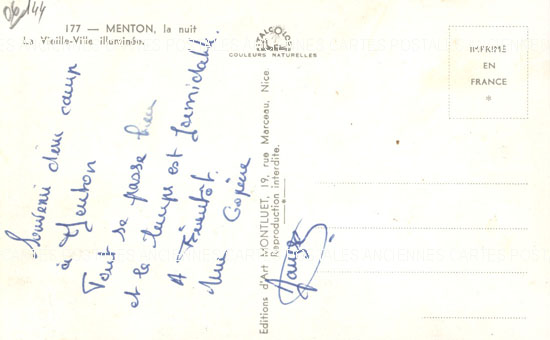 06/144
177 — MENTON, la nuit
La Vieille-Ville illuminée.
COULEURS NATURELLES
IMPRIMÉ
EN
FRANCE
Souvenir d'un camp
à Menton
Tout se passe bien
et le temps est formidable.
A Bientôt.
Editions d'Art MONTLUET, 19, rue Marceau, Nice
Reproduction interdite.
CARTES POSTALES ANCIENNES